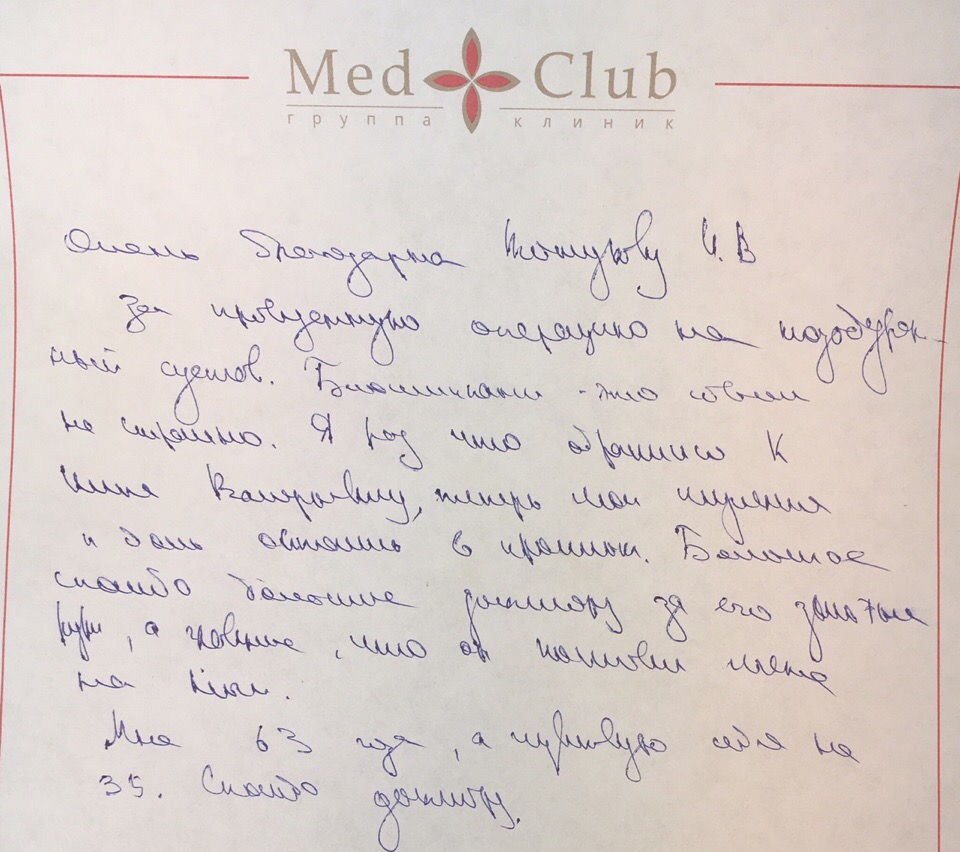 Med Club
группа клиник
Очень благодарна И.В
За проведенную операцию на тазобедрен-
ный сустав. это совсем
не страшно. Я рад что обратился к
теперь мои мучения
и боль остались в прошлом. Большое
спасибо доктору за его золотые
руки, а главное, что он поставил меня
на ноги.
Мне 63 года, а чувствую себя на
35. Спасибо доктору.